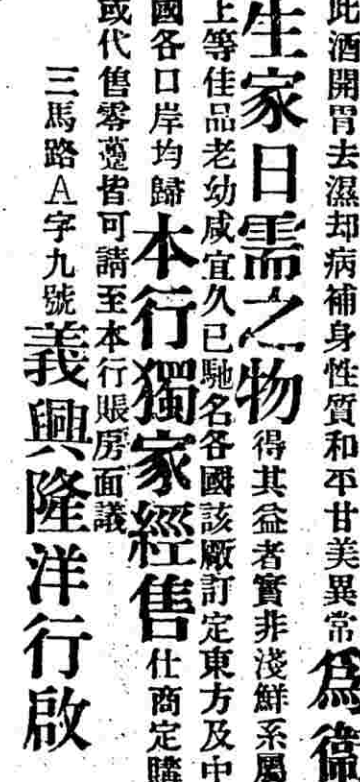 此酒開胃去濕却病補身性質和平甘美異常爲衛
生家日需之物得其益者實非淺鮮系屬
上等佳品老幼咸宜久已馳名各國該廠訂定東方及中
國各口岸均歸本行獨家經售仕商定購
或代售零躉皆可請至本行賬房面議
三馬路A字九號義興隆洋行啟